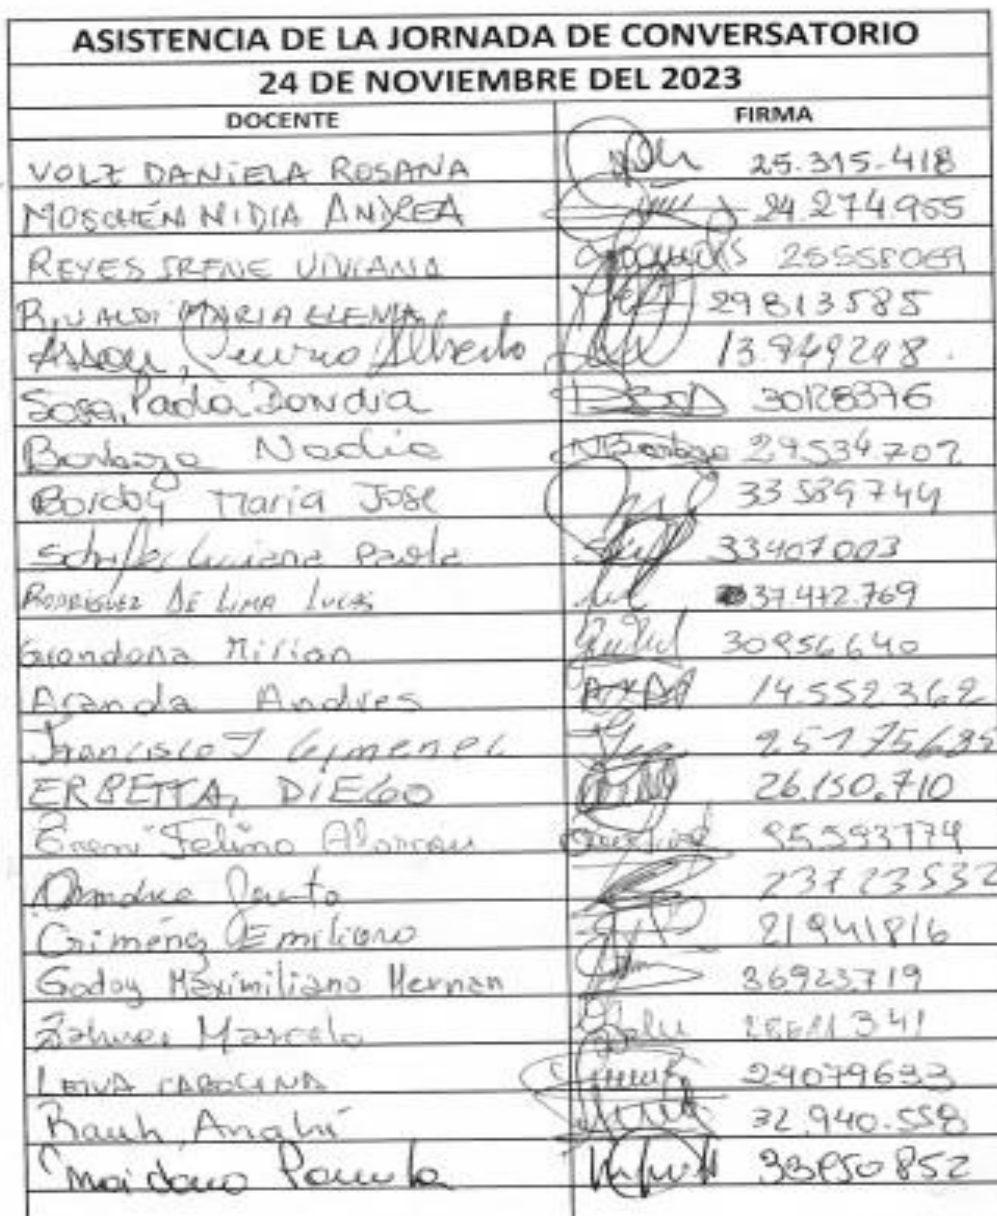 ASISTENCIA DE LA JORNADA DE CONVERSATORIO
24 DE NOVIEMBRE DEL 2023
DOCENTE FIRMA
VOLZ DANIELA ROSANA 25.315.418
MOSCHÉN NIDIA ANDREA 24.274.955
REYES IRENE VIVIANA 25558069
RIVALDI MARIA ELENA 29813585
Alberto 13.949298.
Sosa, Paola 30128376
Barboza Nadia NBarboza 29.534.702
Bordoy María José 33589744
Schiffer Luciana Paola 33407003
RODRIGUEZ DE LIMA LUCAS 37.472.769
Grondona Milian 30956640
Aranda Andres 14.552362
Francisco J Gimenez
ERBETTA, DIEGO 26.150.710
Felino Alarcón
23723532
Emiliano 21941816
Godoy Maximiliano Hernan 36923719
Marcelo
LEIVA CAROLINA 24079633
Rauh, Anahí 32.940.558
Maidana Pamela 33950852